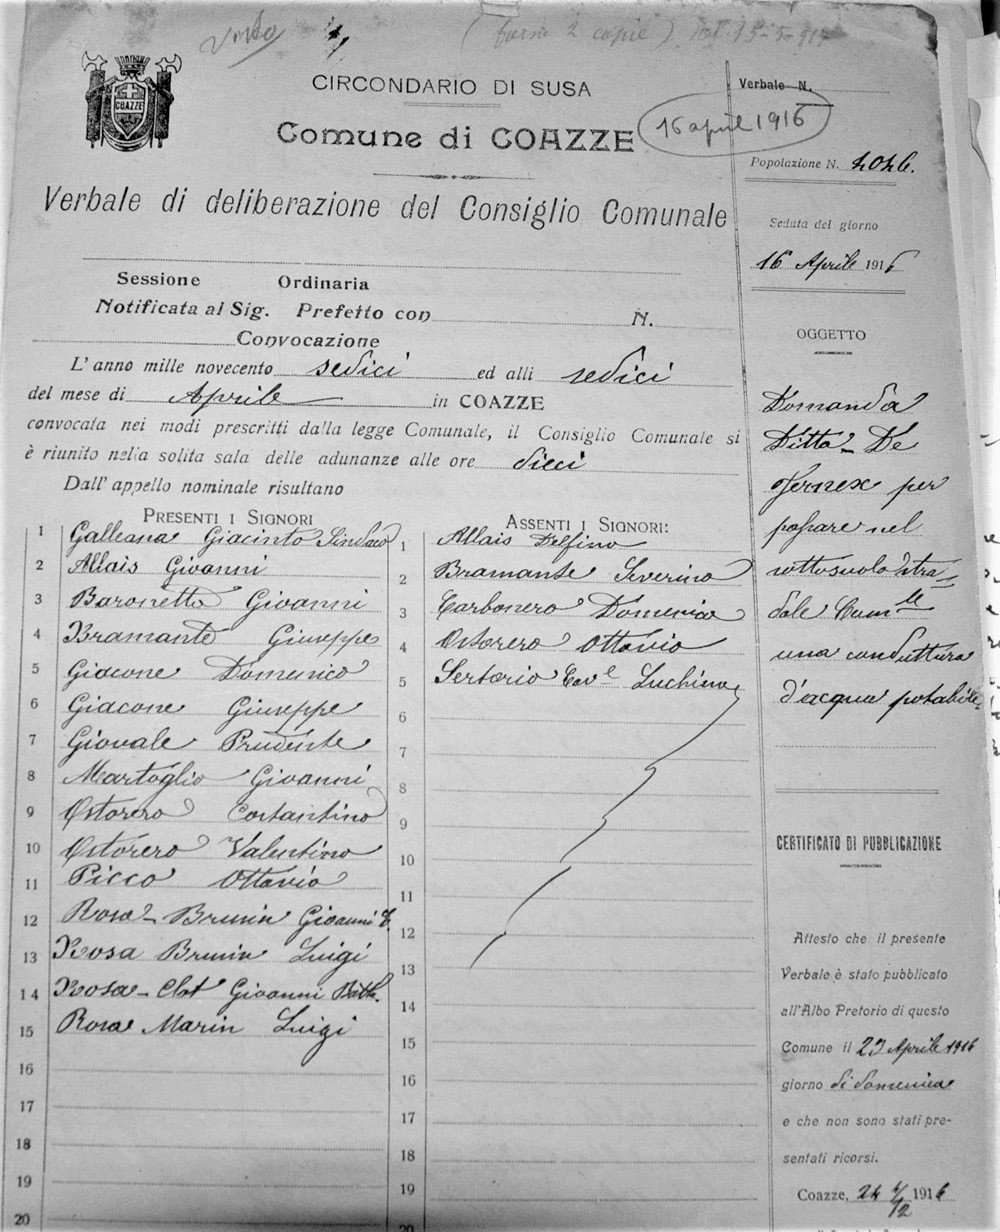 Visto
(farne 2 copie)
COAZZE
CIRCONDARIO DI SUSA
Comune di COAZZE
16 aprile 1916
Verbale di deliberazione del Consiglio Comunale
Sessione Ordinaria
Notificata al Sig. Prefetto con N.
Convocazione
L'anno mille novecento sedici ed alli sedici
del mese di Aprile in COAZZE
convocata nei modi prescritti dalla legge Comunale, il Consiglio Comunale si
è riunito nella solita sala delle adunanze alle ore dieci
Dall'appello nominale risultano
PRESENTI I SIGNORI
1 Galleana Giacinto Sindaco
2 Allais Giovanni
3 Baronetto Giovanni
4 Bramante Giuseppe
5 Giacone Domenico
6 Giacone Giuseppe
7 Giovale Prudente
8 Martoglio Giovanni
9 Ostorero Costantino
10 Ostorero Valentino
11 Picco Ottavio
12 Rosa-Brunin Giovanni
13 Rosa Brunin Luigi
14 Rosa-Clot Giovanni Batt.
15 Rosa Marin Luigi
16
17
18
19
20
ASSENTI I SIGNORI:
1 Allais Delfino
2 Bramante Severino
3 Carbonero Domenico
4 Ostorero Ottavio
5 Sertorio Cav.e Luchino
6
7
8
9
10
11
12
13
14
15
16
17
18
19
20
Verbale N.
Popolazione N. 4046.
Seduta del giorno
16 Aprile 1916
OGGETTO
Domanda
Ditta-De
Fernex per
passare nel
sottosuolo stra-
dale Com.le
una conduttura
d'acqua potabile
CERTIFICATO DI PUBBLICAZIONE
Attesto che il presente
Verbale è stato pubblicato
all'Albo Pretorio di questo
Comune il 23 Aprile 1916
giorno di domenica
e che non sono stati pre-
sentati ricorsi.
Coazze, 24 4/12 1916